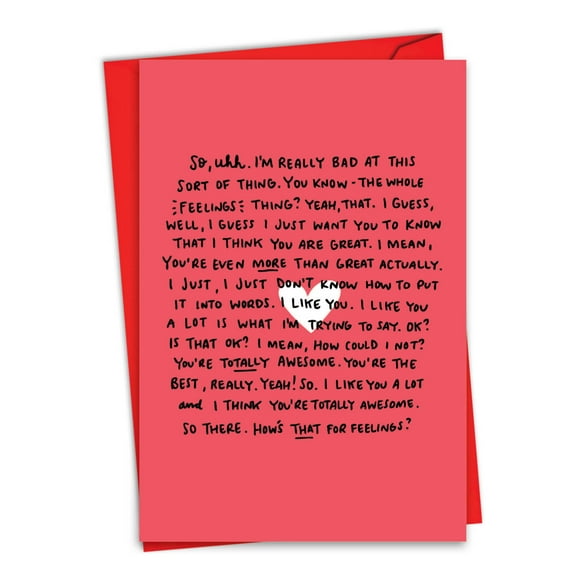 So, uhh. I'M REALLY BAD AT THIS
SORT OF THING. YOU KNOW - THE WHOLE
FEELINGS THING? YEAH, THAT. I GUESS,
WELL, I GUESS I JUST WANT YOU TO KNOW
THAT I THINK YOU ARE GREAT. I MEAN,
YOU'RE EVEN MORE THAN GREAT ACTUALLY.
I JUST, I JUST DON'T KNOW HOW TO PUT
IT INTO WORDS. I LIKE YOU. I LIKE YOU
A LOT IS WHAT I'M TRYING TO SAY. OK?
IS THAT OK? I MEAN, HOW COULD I NOT?
YOU'RE TOTALLY AWESOME. YOU'RE THE
BEST, REALLY. YEAH! SO. I LIKE YOU A LOT
and I THINK YOU'RE TOTALLY AWESOME.
SO THERE. HOW'S THAT FOR FEELINGS?